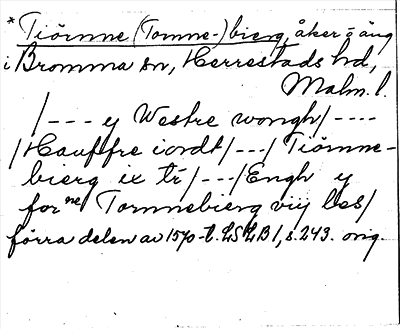 * Tiörnne (Tomne-) bierg, åker o äng
i Bromma sn, Herrestads hd,
Malm. l.
/--- y Westre wongh/----
/Hauffre iordt/---/ Tiömne-
bierg ix tr/---/Engh y
for ne Tommebierg viij les/
förra delen av 1570-t. LSLB 1, s. 243. orig.